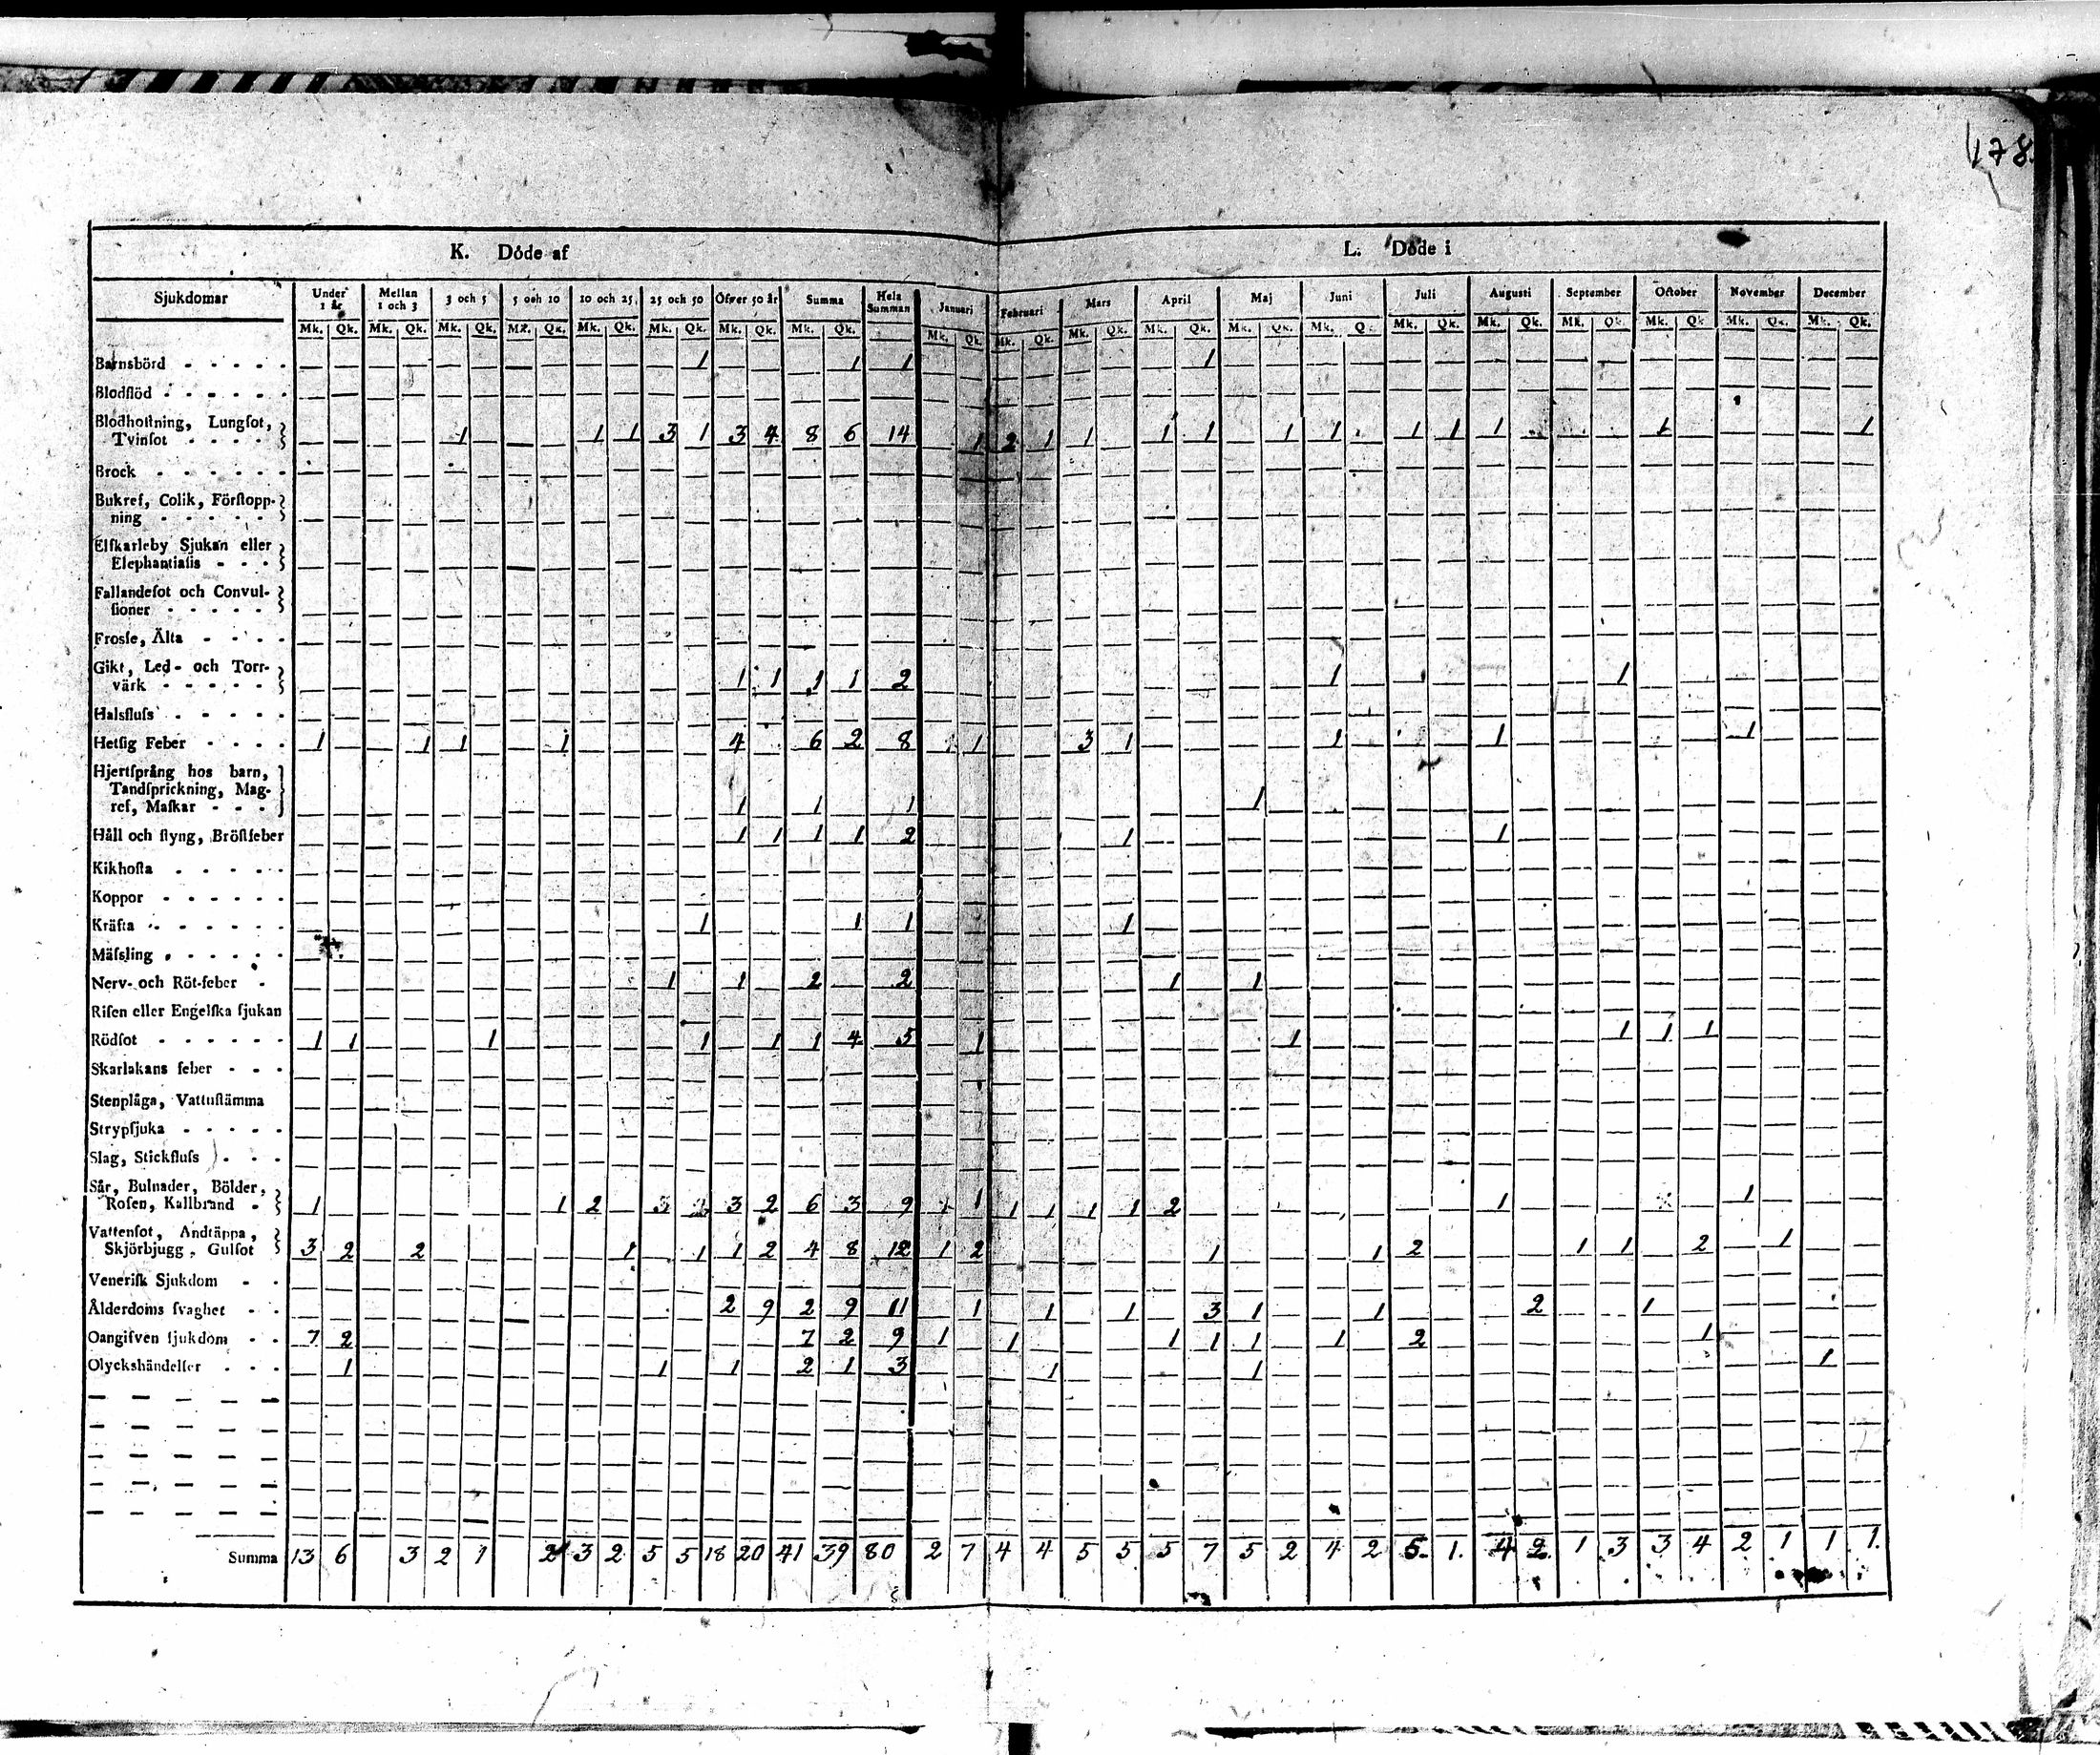 178.
K. Döde af
L. Döde i
Sjukdomar Under 1 år Mellan 1 och 3 3 och 5 5 och 10 10 och 25 25 och 50 Öfver 50 år Summa Hela Summan Januari Februari Mars April Maj Juni Juli Augusti September October November December
Mk. Qk. Mk. Qk. Mk. Qk. Mk. Qk. Mk. Qk. Mk. Qk. Mk. Qk. Mk. Qk. Mk. Qk. Mk. Qk. Mk. Qk. Mk. Qk. Mk. Qk. Mk. Qk. Mk. Qk. Mk. Qk. Mk. Qk. Mk. Qk. Mk. Qk. Mk. Qk.
Barnsbörd 1 1 1 1
Blodflöd
Blodhoſtning, Lungſot,
Tvinſot 1 1 1 3 1 3 4 8 6 14 1 2 1 1 1 1 1 1 1 1 1 1 1
Brock
Bukref, Colik, Förſtopp-
ning
Elſkarleby Sjukan eller
Elephantiaſis
Fallandeſot och Convul-
ſioner
Frosſe, Älta
Gikt, Led- och Torr-
värk 1 1 1 1 2 1 1
Halsfluſs
Hetſig Feber 1 1 1 1 4 6 2 8 1 3 1 1 1 1
Hjertſprång hos barn,
Tandſprickning, Mag-
ref, Maſkar 1 1 1 1
Håll och ſtyng, Bröſtfeber 1 1 1 1 2 1 1
Kikhoſta
Koppor
Kräfta 1 1 1 1
Mäſsling
Nerv- och Röt-feber 1 1 2 2 1 1
Riſen eller Engelſka ſjukan
Rödſot 1 1 1 1 1 1 4 5 1 1 1 1 1
Skarlakans feber
Stenplåga, Vattuſtämma
Strypſjuka
Slag, Stickfluſs
Sår, Bulnader, Bölder,
Roſen, Kallbrand 1 1 2 3 2 6 3 9 1 1 1 1 1 2 1 1
Vattenſot, Andtäppa,
Skjörbjugg, Gulſot 3 2 2 1 1 1 2 4 8 12 1 2 1 1 2 1 1 2 1
Veneriſk Sjukdom
Ålderdoms ſvaghet 2 9 2 9 11 1 1 1 3 1 1 2 1
Oangifven ſjukdom 7 2 7 2 9 1 1 1 1 1 1 2 1
Olyckshändelſer 1 1 1 2 1 3 1 1 1
Summa 13 6 3 2 1 2 3 2 5 5 18 20 41 39 80 2 7 4 4 5 5 5 7 5 2 4 2 5. 1. 4 2. 1 3 3 4 2 1 1 1.